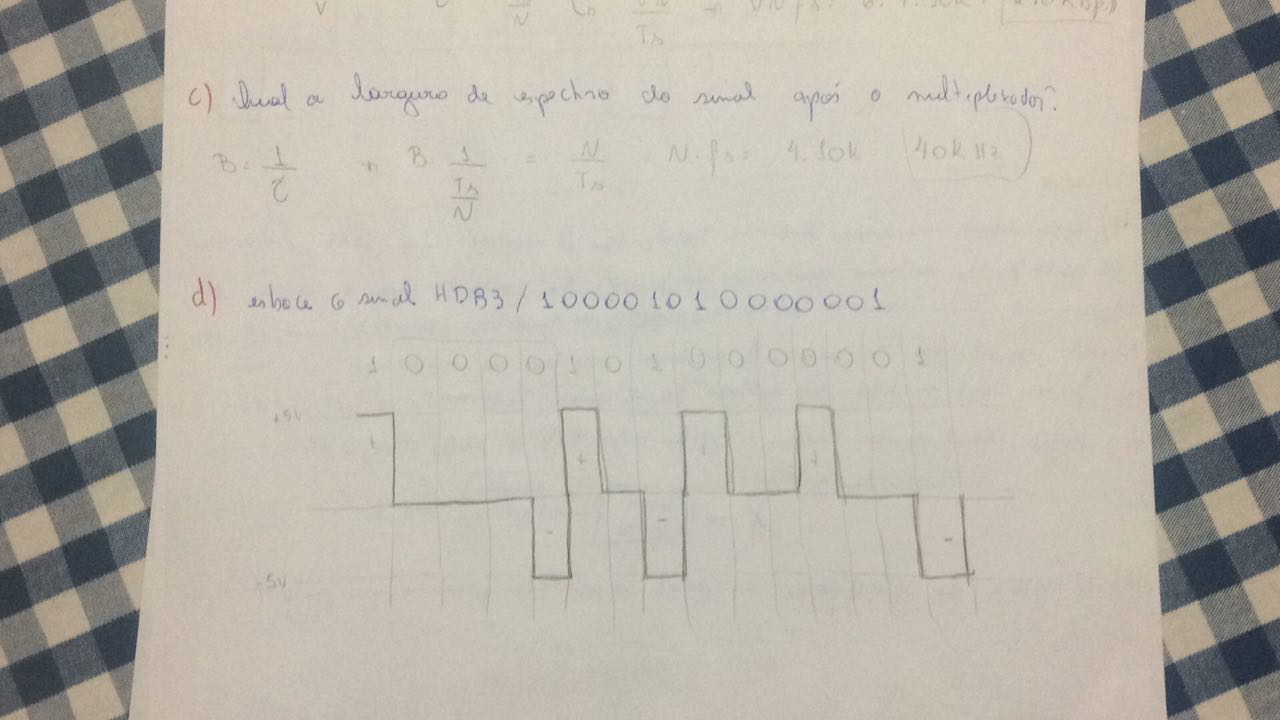 c) Qual a largura de espectro do sinal após o multiplexador?
B = 1/τ → B = 1/(Ts/N) = N/Ts = N.fs = 4.10k = 40k Hz
d) esboce o sinal HDB3 / 100001010000001
1 0 0 0 0 1 0 1 0 0 0 0 0 0 1
+5V
+ + + +
- - -
-5V